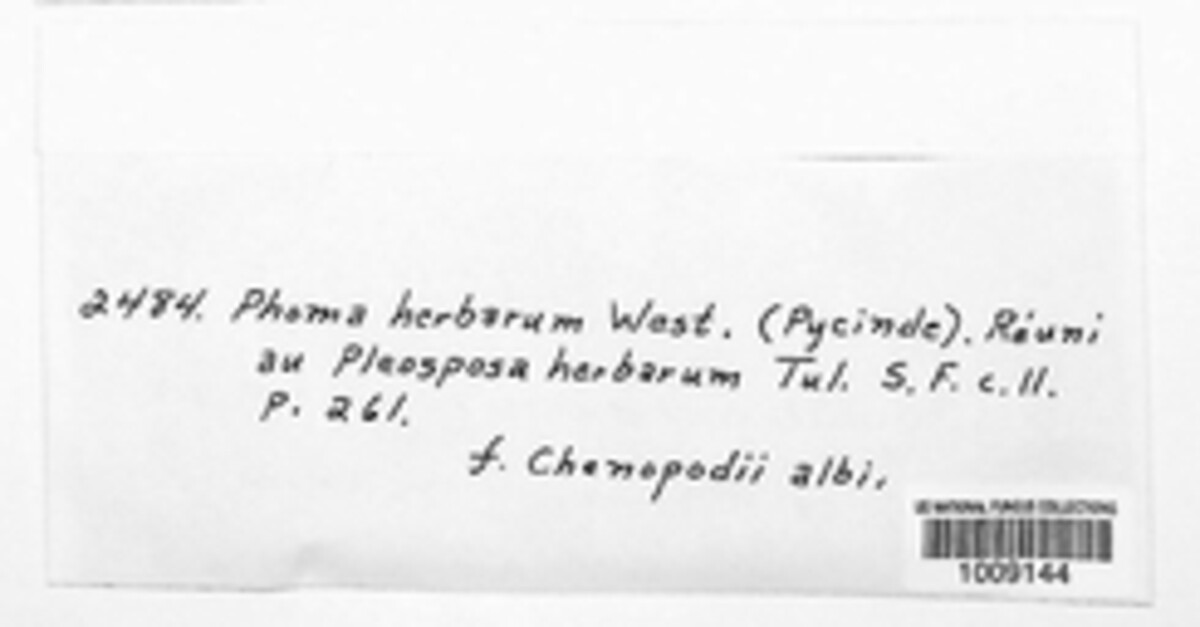 2484. Phoma herbarum West. (Pycinde). Réuni
au Pleosposa herbarum Tul. S. F. c. ll.
P. 261.
f. Chenopodii albi.
US NATIONAL FUNGUS COLLECTIONS
1009144